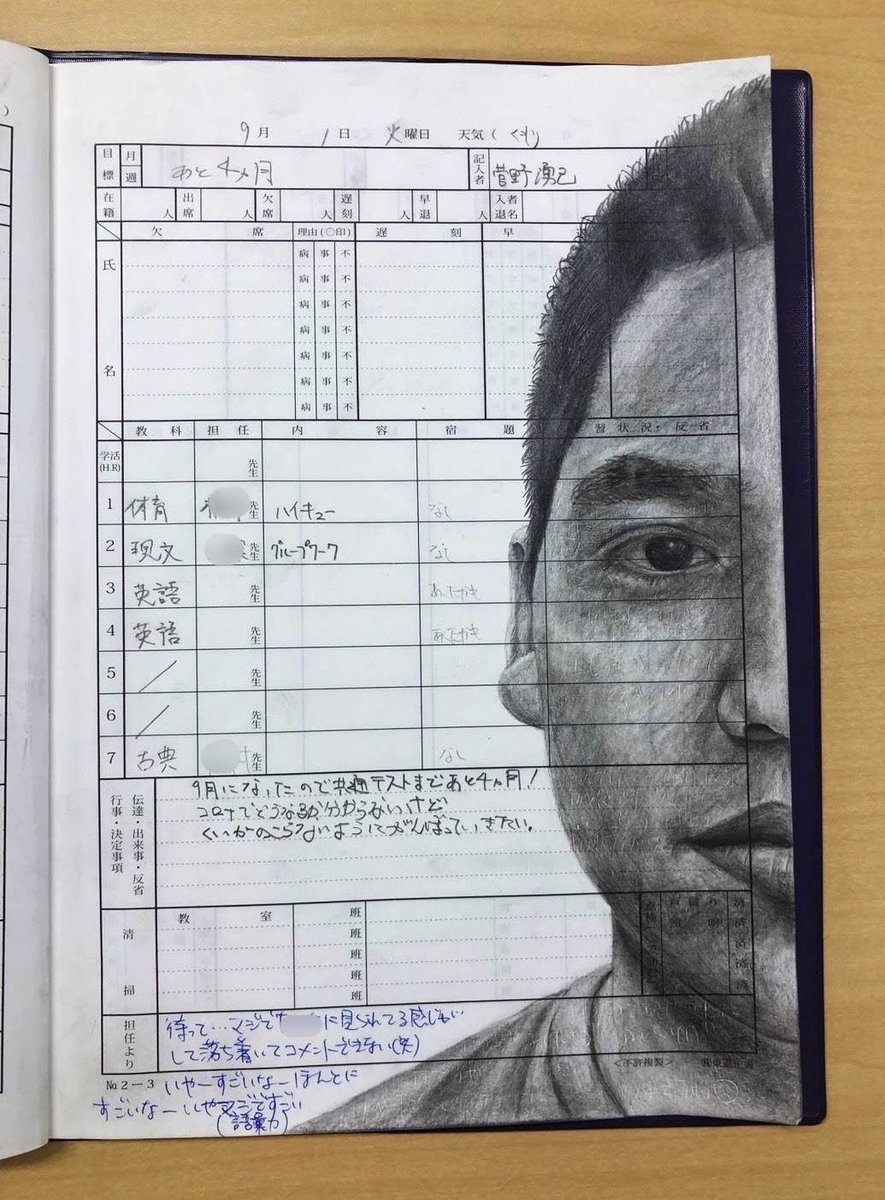 9月 1日 火曜日 天気(くもり)
目標 月 週 あと4ヵ月 記入者 菅野湧己
在籍 人 出席 人 欠席 人 遅刻 人 早退 人 入者 退名
欠席 理由(〇印) 遅刻 早
氏名
病 事 不
病 事 不
病 事 不
病 事 不
病 事 不
病 事 不
病 事 不
教科 担任 内容 宿題 習状況・反省
学活(H.R) 先生
1 体育 先生 ハイキュー なし
2 現文 先生 グループワーク なし
3 英語 先生
4 英語 先生
5 / 先生
6 / 先生
7 古典 先生 なし
伝達・出来事・反省
行事・決定事項
9月になったので共通テストまであと4ヶ月!
コロナでどうなるか分からないけど
くいがのこらないようにがんばっていきたい。
清掃 教室 班
班
班
班
班
担任より
待って…マジで に見られてる感じが
して落ち着いてコメントできない(笑)
№2−3 いやーすごいなーほんとに
すごいなーいやマジですごい
(語彙力)
<不許複製>